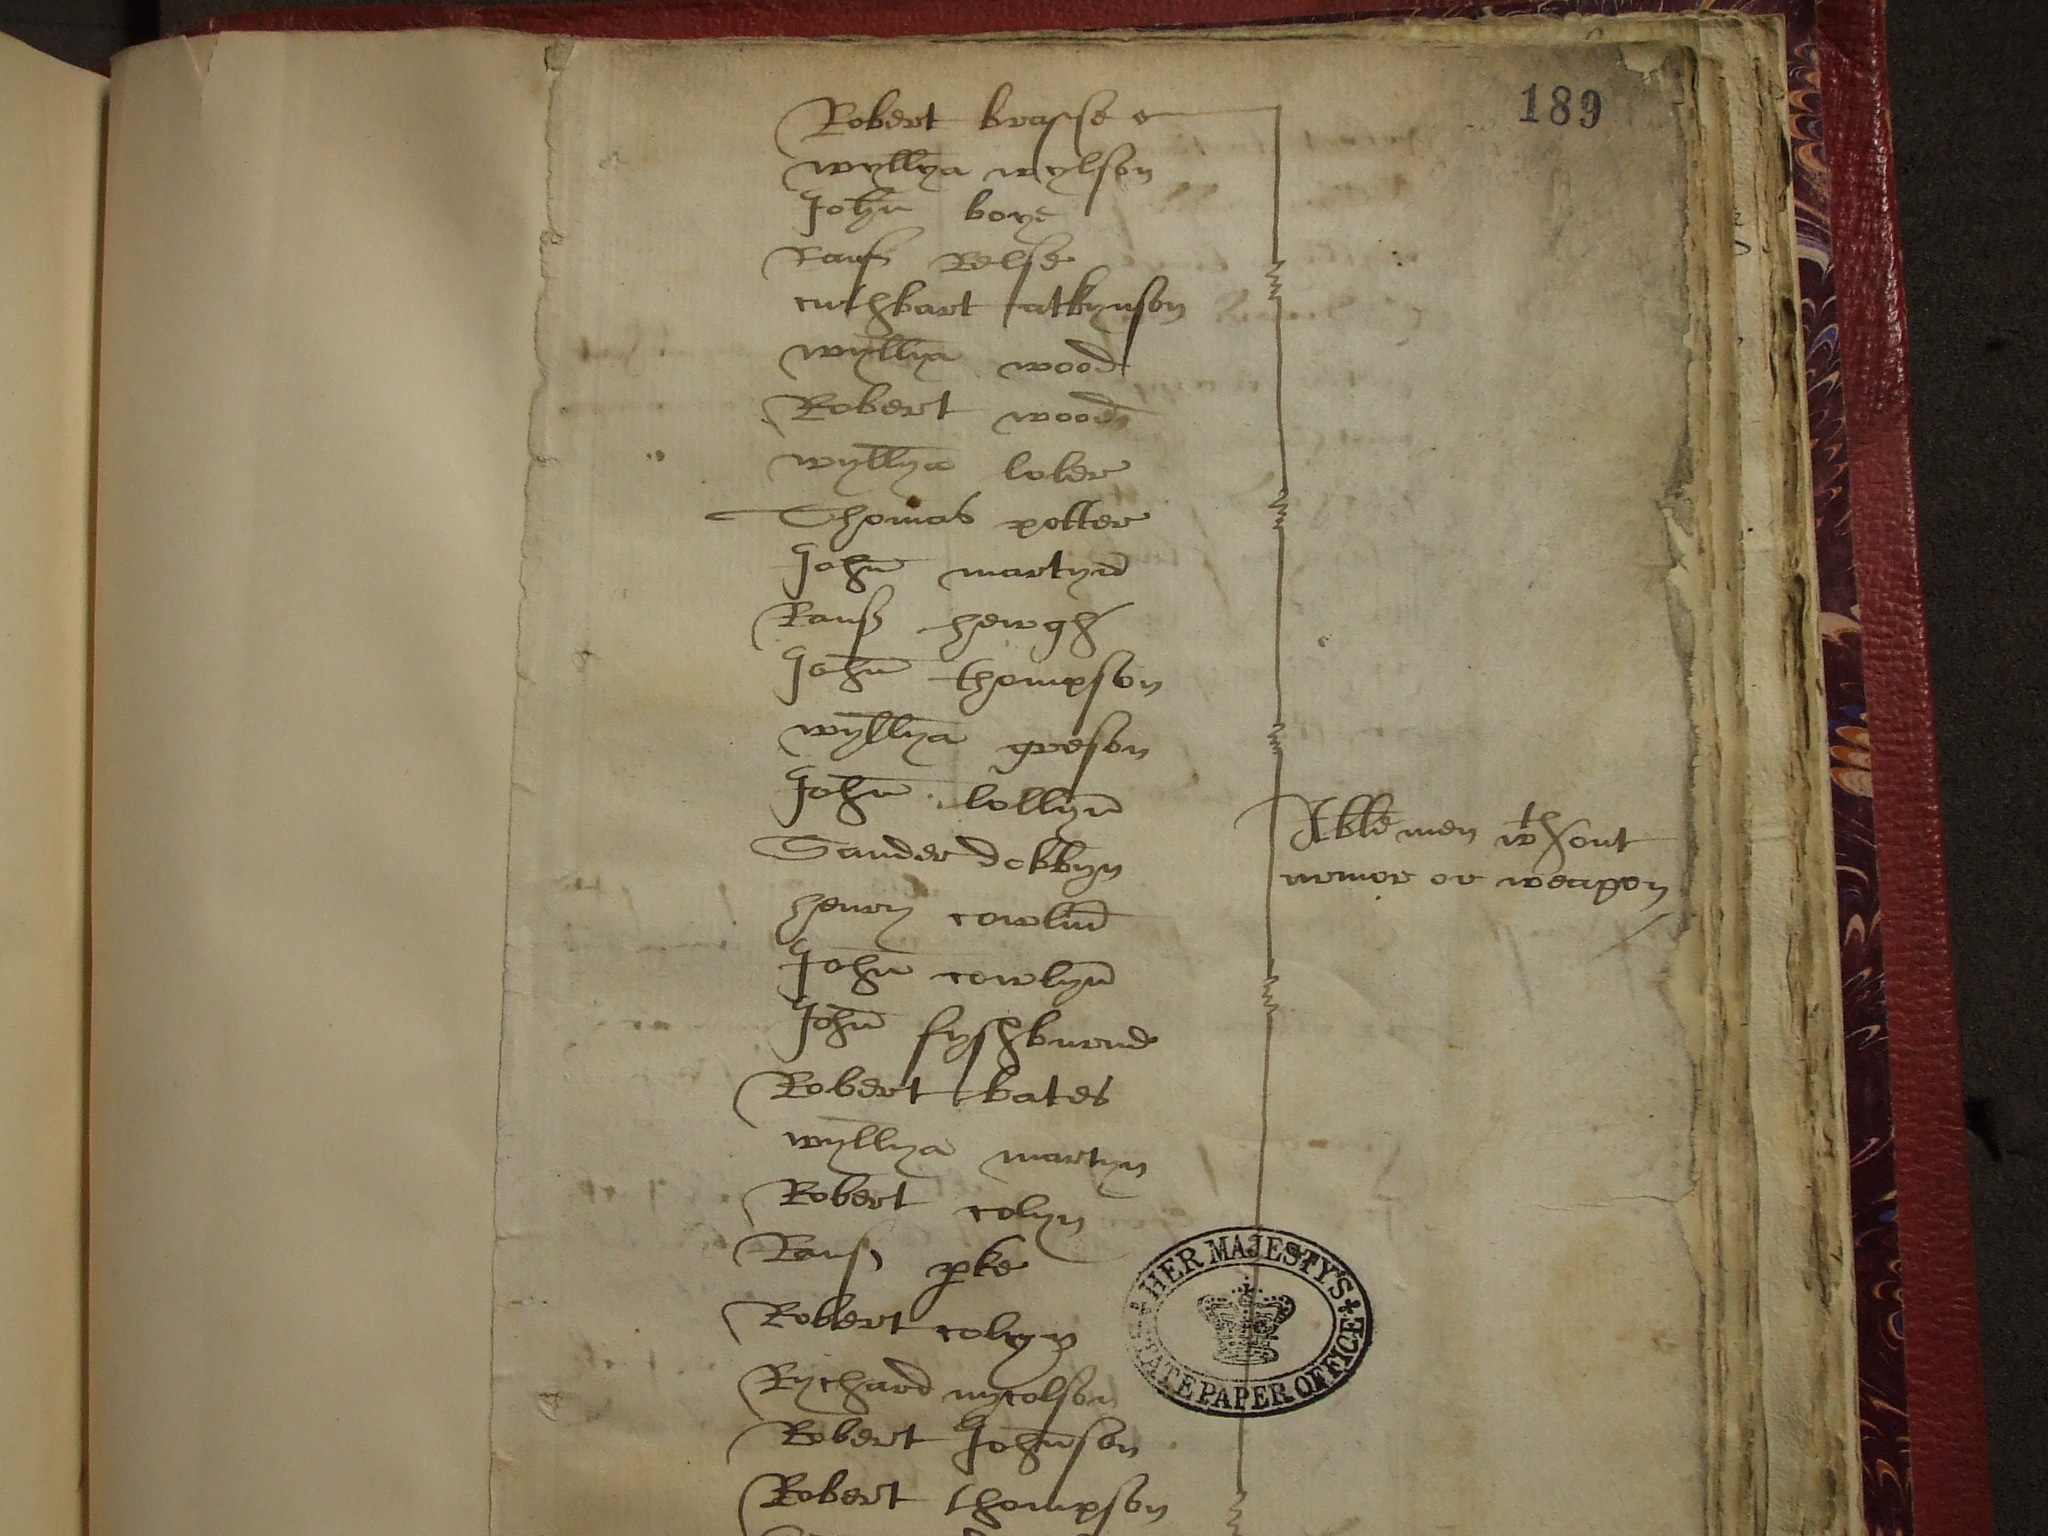 189
Robert brasse
wyllyā wylson
John boye
Rauf Relse
cuthbart atkynson
wyllyā wood
Robert wood
wyllyā lober
Thomas potter
John martyn
Rauf hewgh
John thompson
wyllyā greson
John lollyn
Sander dobbyn
henry cowlin
John cowlyn
John fyshburne
Robert bates
wyllyā martyn
Robert colyn
Rauf pke
Robert colyn
Rychard nycolson
Robert Johnson
Robert thompson
Able men wthout
armor or weapon
HER MAJESTY'S
STATE PAPER OFFICE